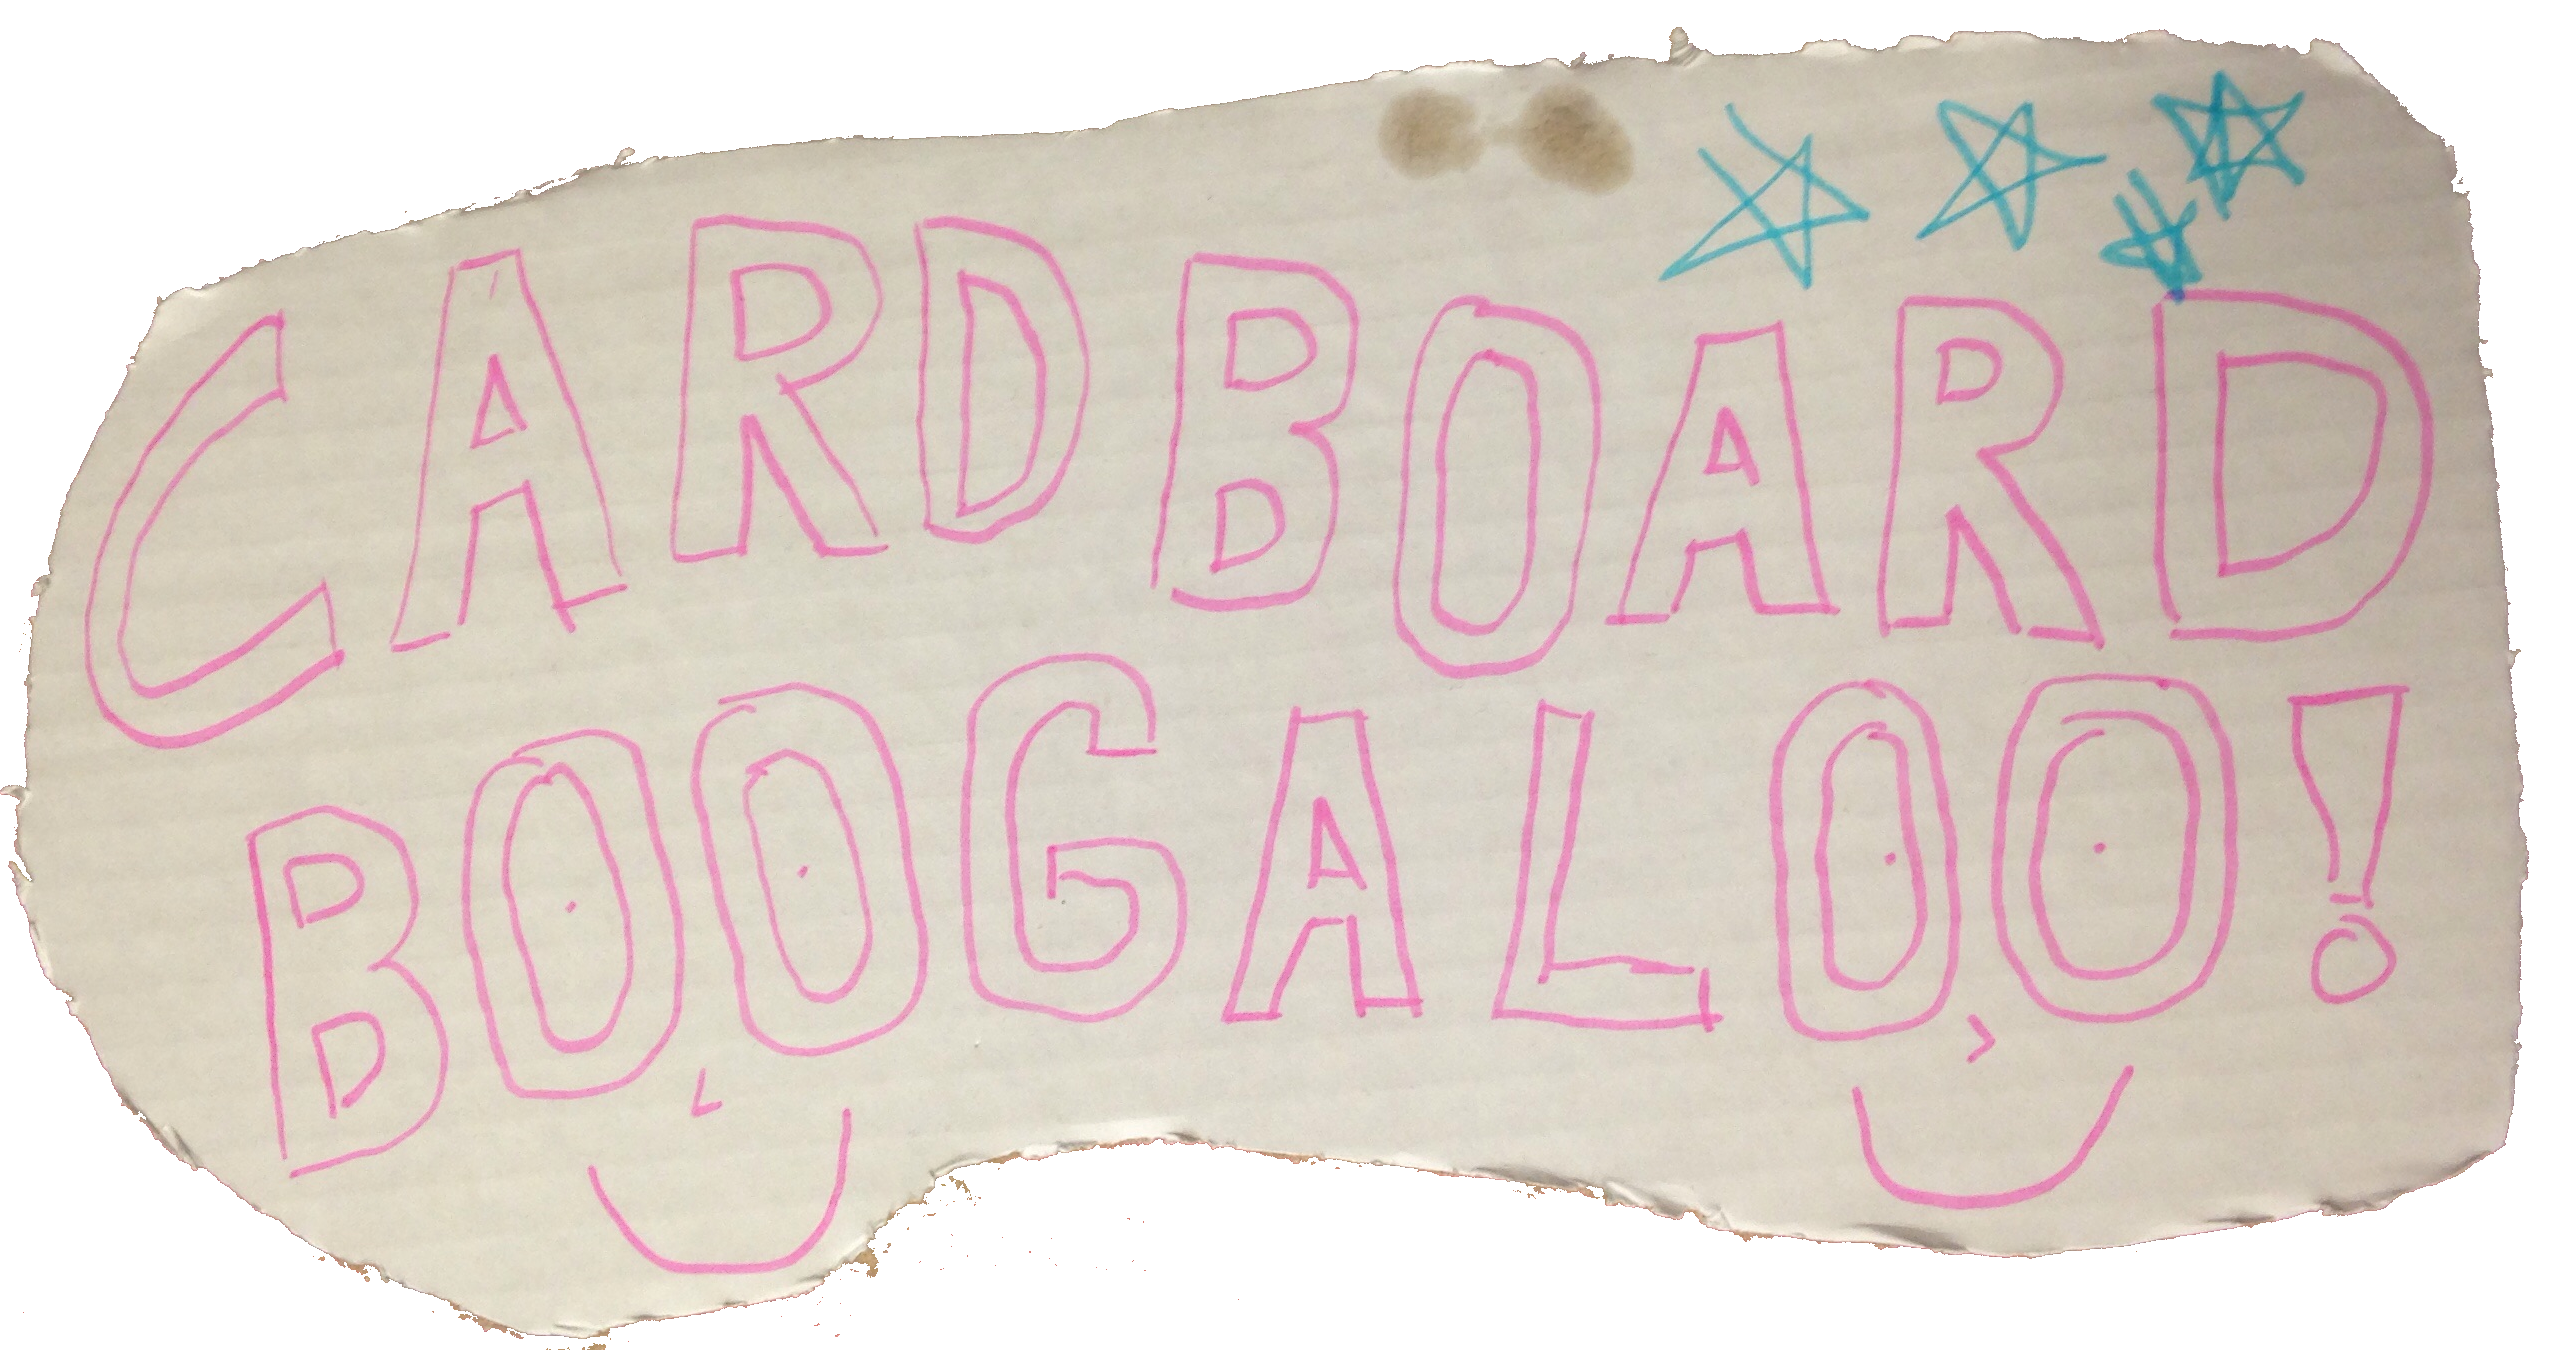 CARDBOARD
BOOGALOO!